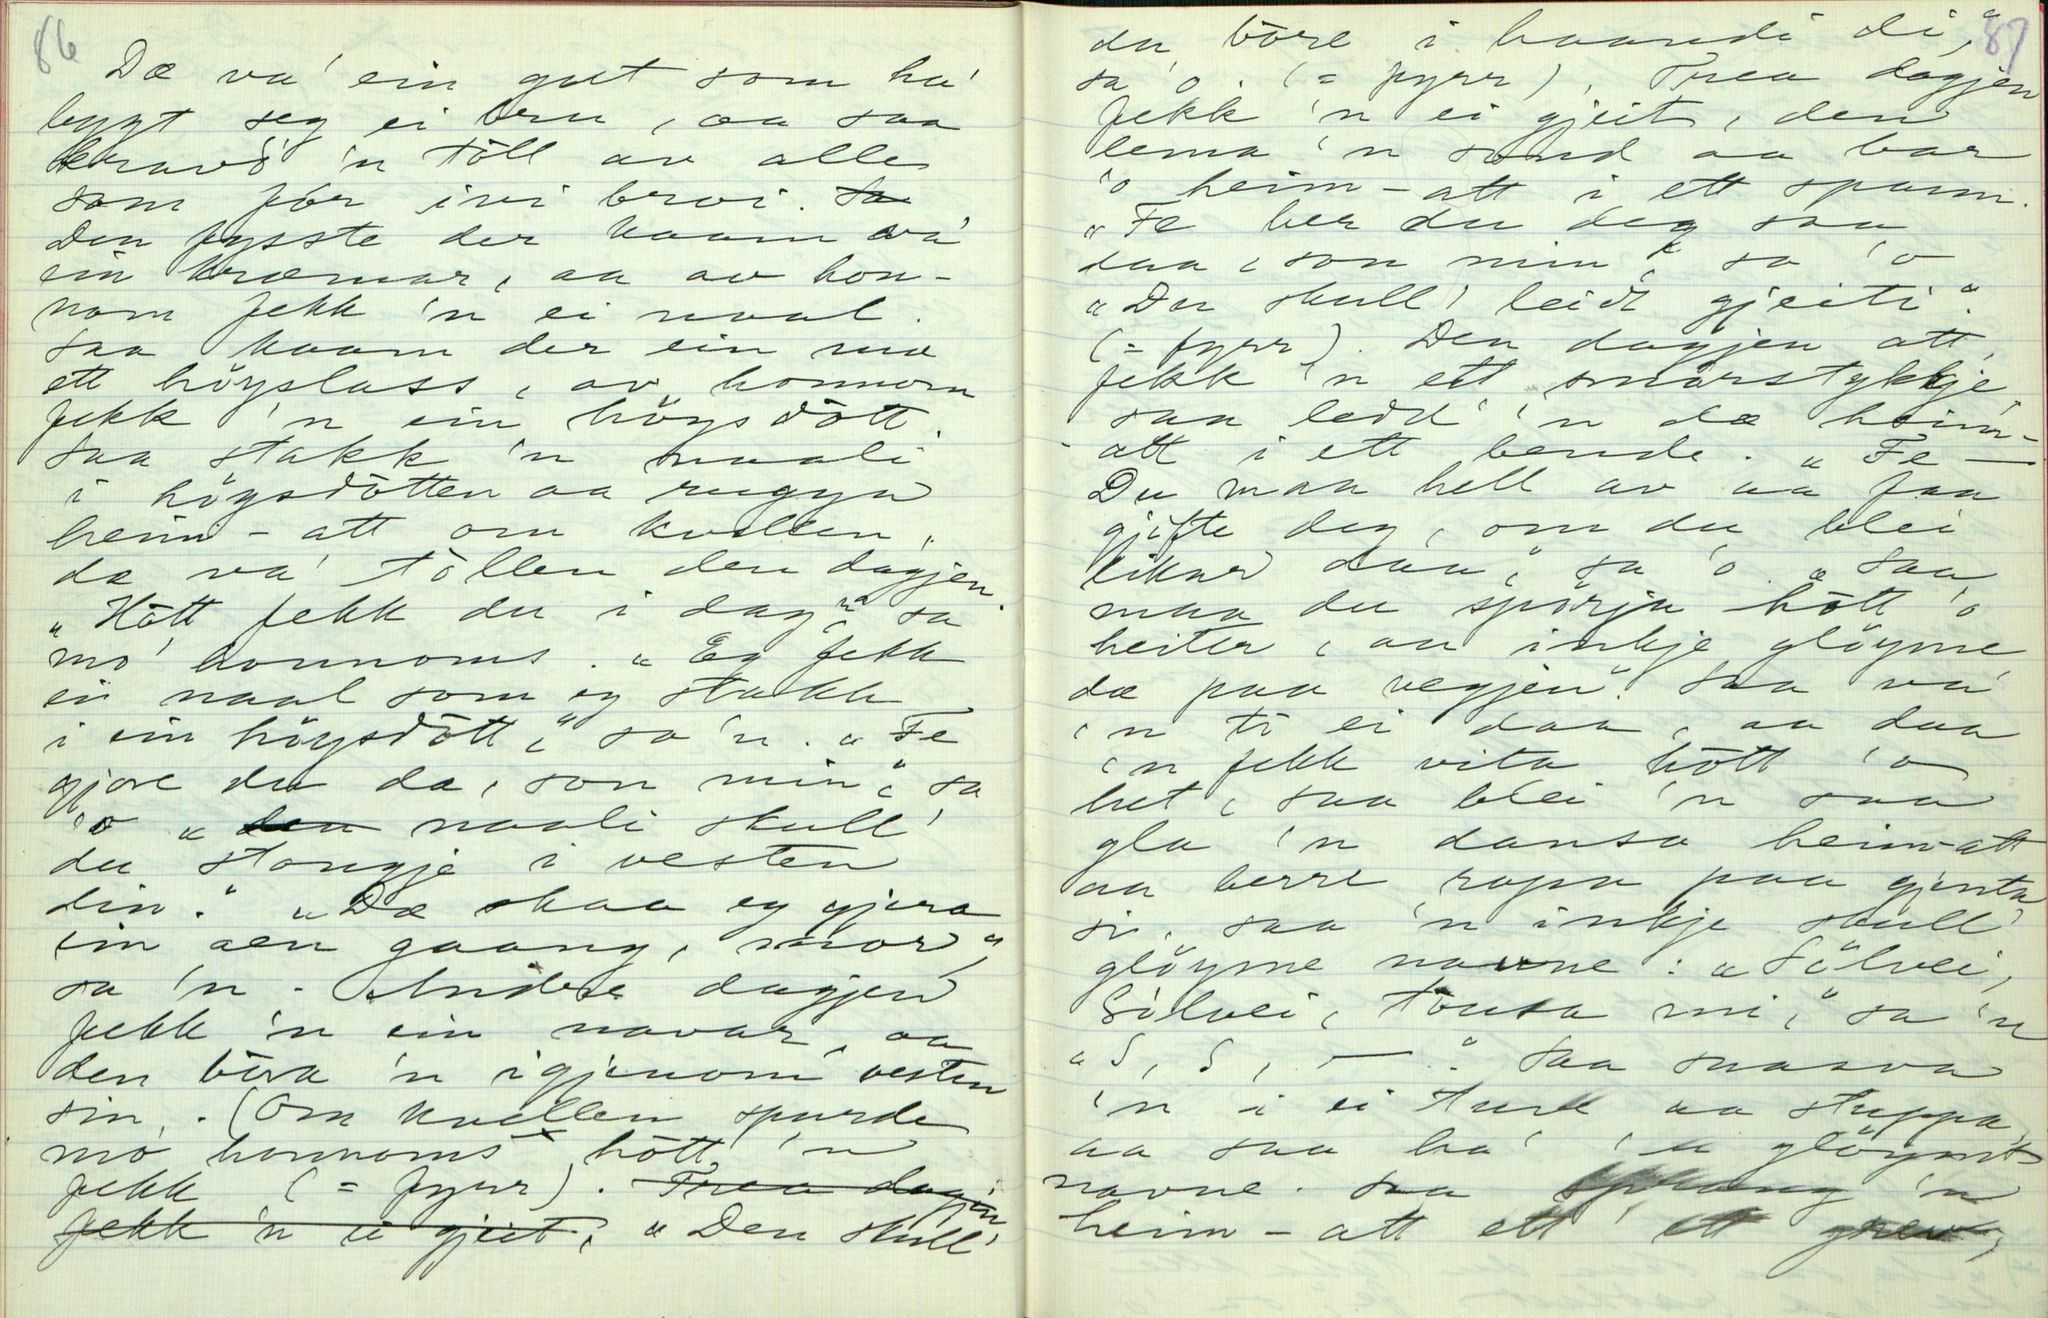 86
Dæ va' ein gut som ha'
bygt seg ei bru, aa saa
kravd' 'n töll av alle
som fór ivi brui. Sa
Den fysste der kaam va'
ein kræmar, aa av hon-
nom fekk 'n ei naal.
Saa kaam der ein mæ
ett höyslass, av honnom
fekk 'n ein höysdött.
Saa stakk 'n naali
i höysdötten aa
heim-att om kvellen,
dæ va' töllen den dagjen.
"Hött fekk du i dag," sa
mo' honnoms. "Eg fekk
ei naal som eg stakk
i ein höysdött," sa 'n. "Fe
gjore du da, son min," sa
'o "den naali skull'
du stongje i vesten
din." "Dæ skaa eg gjera
ein aen gaang, mor,"
sa 'n. Andre dagjen
fekk 'n ein navar, aa
den böra 'n igjenom vesten
sin. (Om kvellen spurde
mo' honnoms hött 'n
fekk (= fyrr). Trea dagjen
fekk 'n ei gjeit, "Den skull'
87
du böre i haandi di,"
sa 'o. (= fyrr). Trea dagjen
fekk 'n ei gjeit, den
lema 'n sund aa bar
'o heim-att i ett spann.
"Fe ber du deg saa
daa, son min," sa 'o
"Du skull' leidt gjeiti".
(= fyrr). Den dagjen att,
fekk 'n ett smörstykkje,
saa ledd' 'n dæ heim-
att i ett bende. "Fe —
Du maa hell av aa faa
gjifte deg, om du blei
likar daa," sa 'o. "Saa
maa du spörja hött 'o
heiter, aa inkje glöyme
dæ paa vegjen". Saa va'
'n ti ei daa, aa daa
'n fekk vita hött 'o
het, saa blei 'n saa
gla 'n dansa heim-att
aa berre ropa paa gjenta
si, saa 'n inkje skull'
glöyme navne: "Sölvei,
Sölvei, tousa mi," sa 'n
"S, S, —." Saa snaava
'n i ei tuve aa stuppa,
aa saa ha' 'n glöymt
navne. Saa sprang 'n
heim-att ett' ett grev,